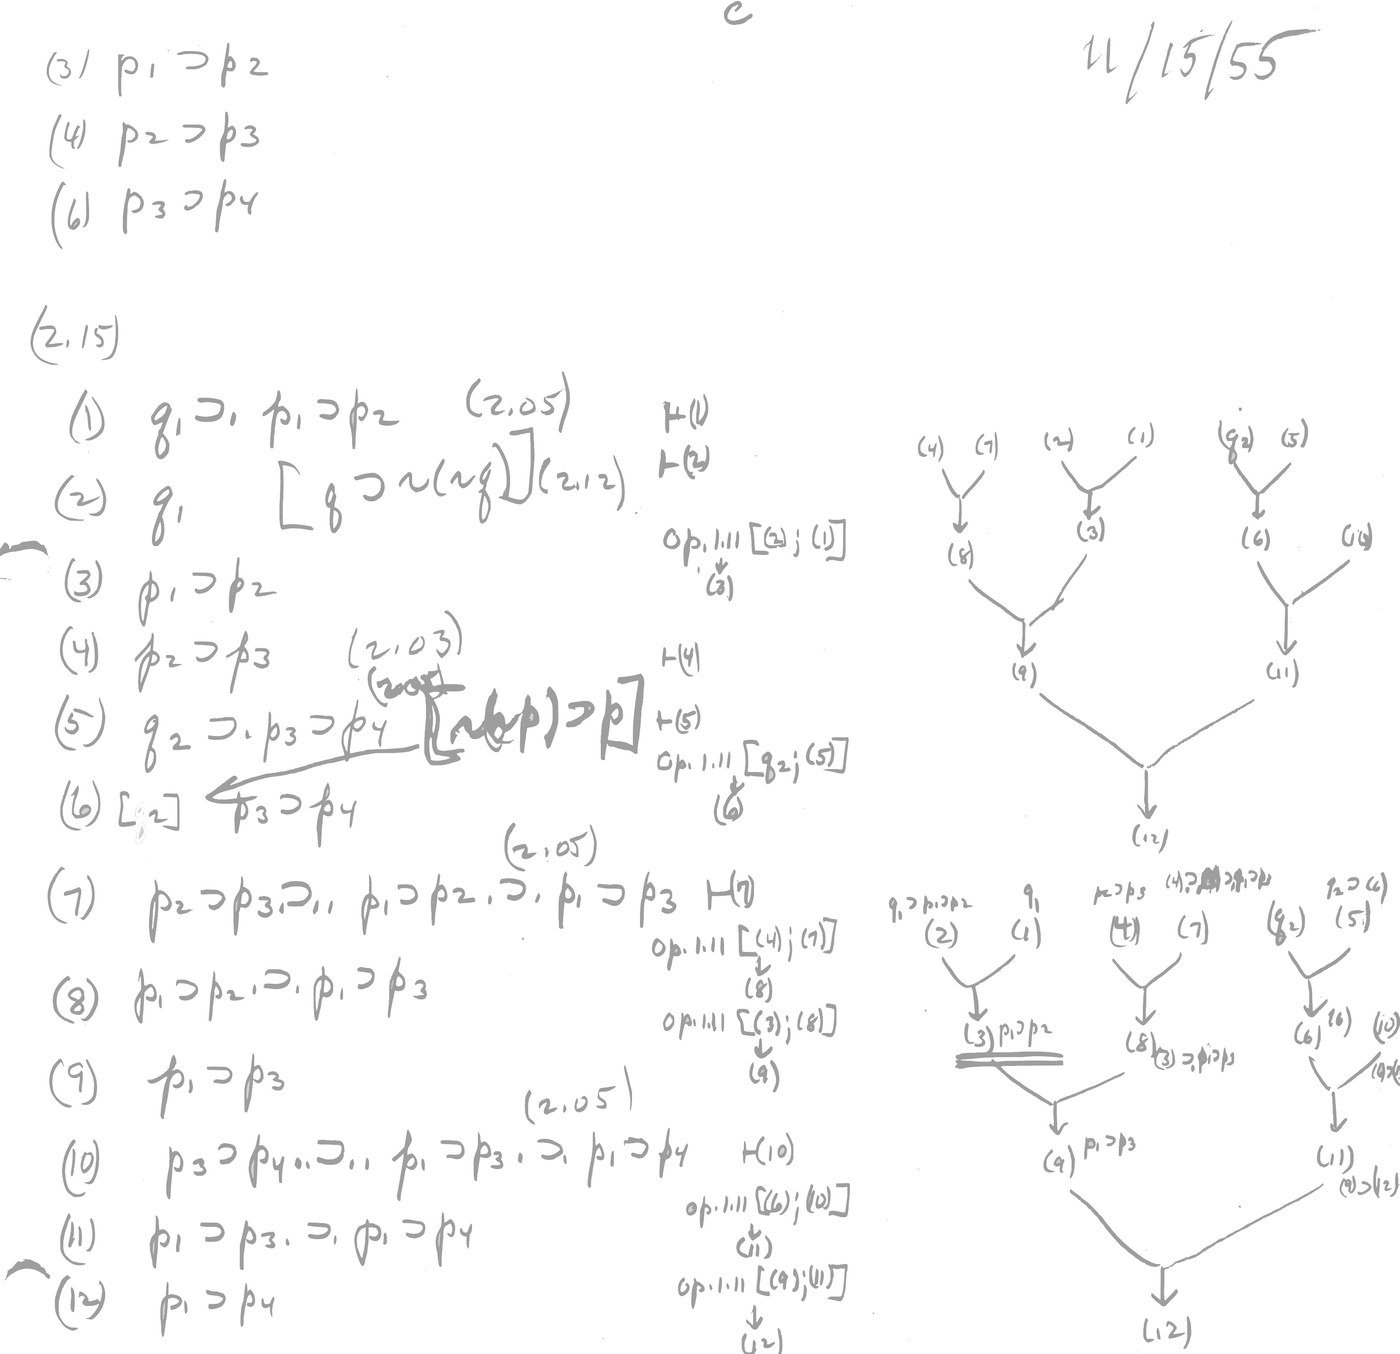 c
11/15/55
(3) p1 ⊃ p2
(4) p2 ⊃ p3
(6) p3 ⊃ p4
(2.15)
(1) q1 ⊃. p1 ⊃ p2 (2.05) ⊢(1)
(2) q1 [q ⊃ ~(~q)] (2.12) ⊢(2)
Op. 1.11 [(2); (1)]
↓
(3)
(3) p1 ⊃ p2
(4) p2 ⊃ p3 ⊢(4)
(2.03)
(5) q2 ⊃. p3 ⊃ p4 [~(~p) ⊃ p] ⊢(5)
Op. 1.11 [q2; (5)]
↓
(6)
(6) [q2] p3 ⊃ p4
(2.05)
(7) p2 ⊃ p3 .⊃.. p1 ⊃ p2 .⊃. p1 ⊃ p3 ⊢(7)
Op. 1.11 [(4); (7)]
↓
(8)
(8) p1 ⊃ p2 .⊃. p1 ⊃ p3
Op. 1.11 [(3); (8)]
↓
(9)
(9) p1 ⊃ p3
(2.05)
(10) p3 ⊃ p4 ..⊃.. p1 ⊃ p3 .⊃. p1 ⊃ p4 ⊢(10)
Op. 1.11 [(6); (10)]
↓
(11)
(11) p1 ⊃ p3 .⊃. p1 ⊃ p4
Op. 1.11 [(9); (11)]
↓
(12)
(12) p1 ⊃ p4
(4) (7) (2) (1) (q2) (5)
(8) (3) (6) (10)
(9) (11)
(12)
q1 ⊃ p1 ⊃ p2 q1 p2 ⊃ p3 q2 ⊃ (6)
(2) (1) (4) (7) (q2) (5)
(3) p1 ⊃ p2 (8) (3) ⊃. p1 ⊃ p3 (6) (6) (10)
(9) p1 ⊃ p3 (11) (9) ⊃ (12)
(12)